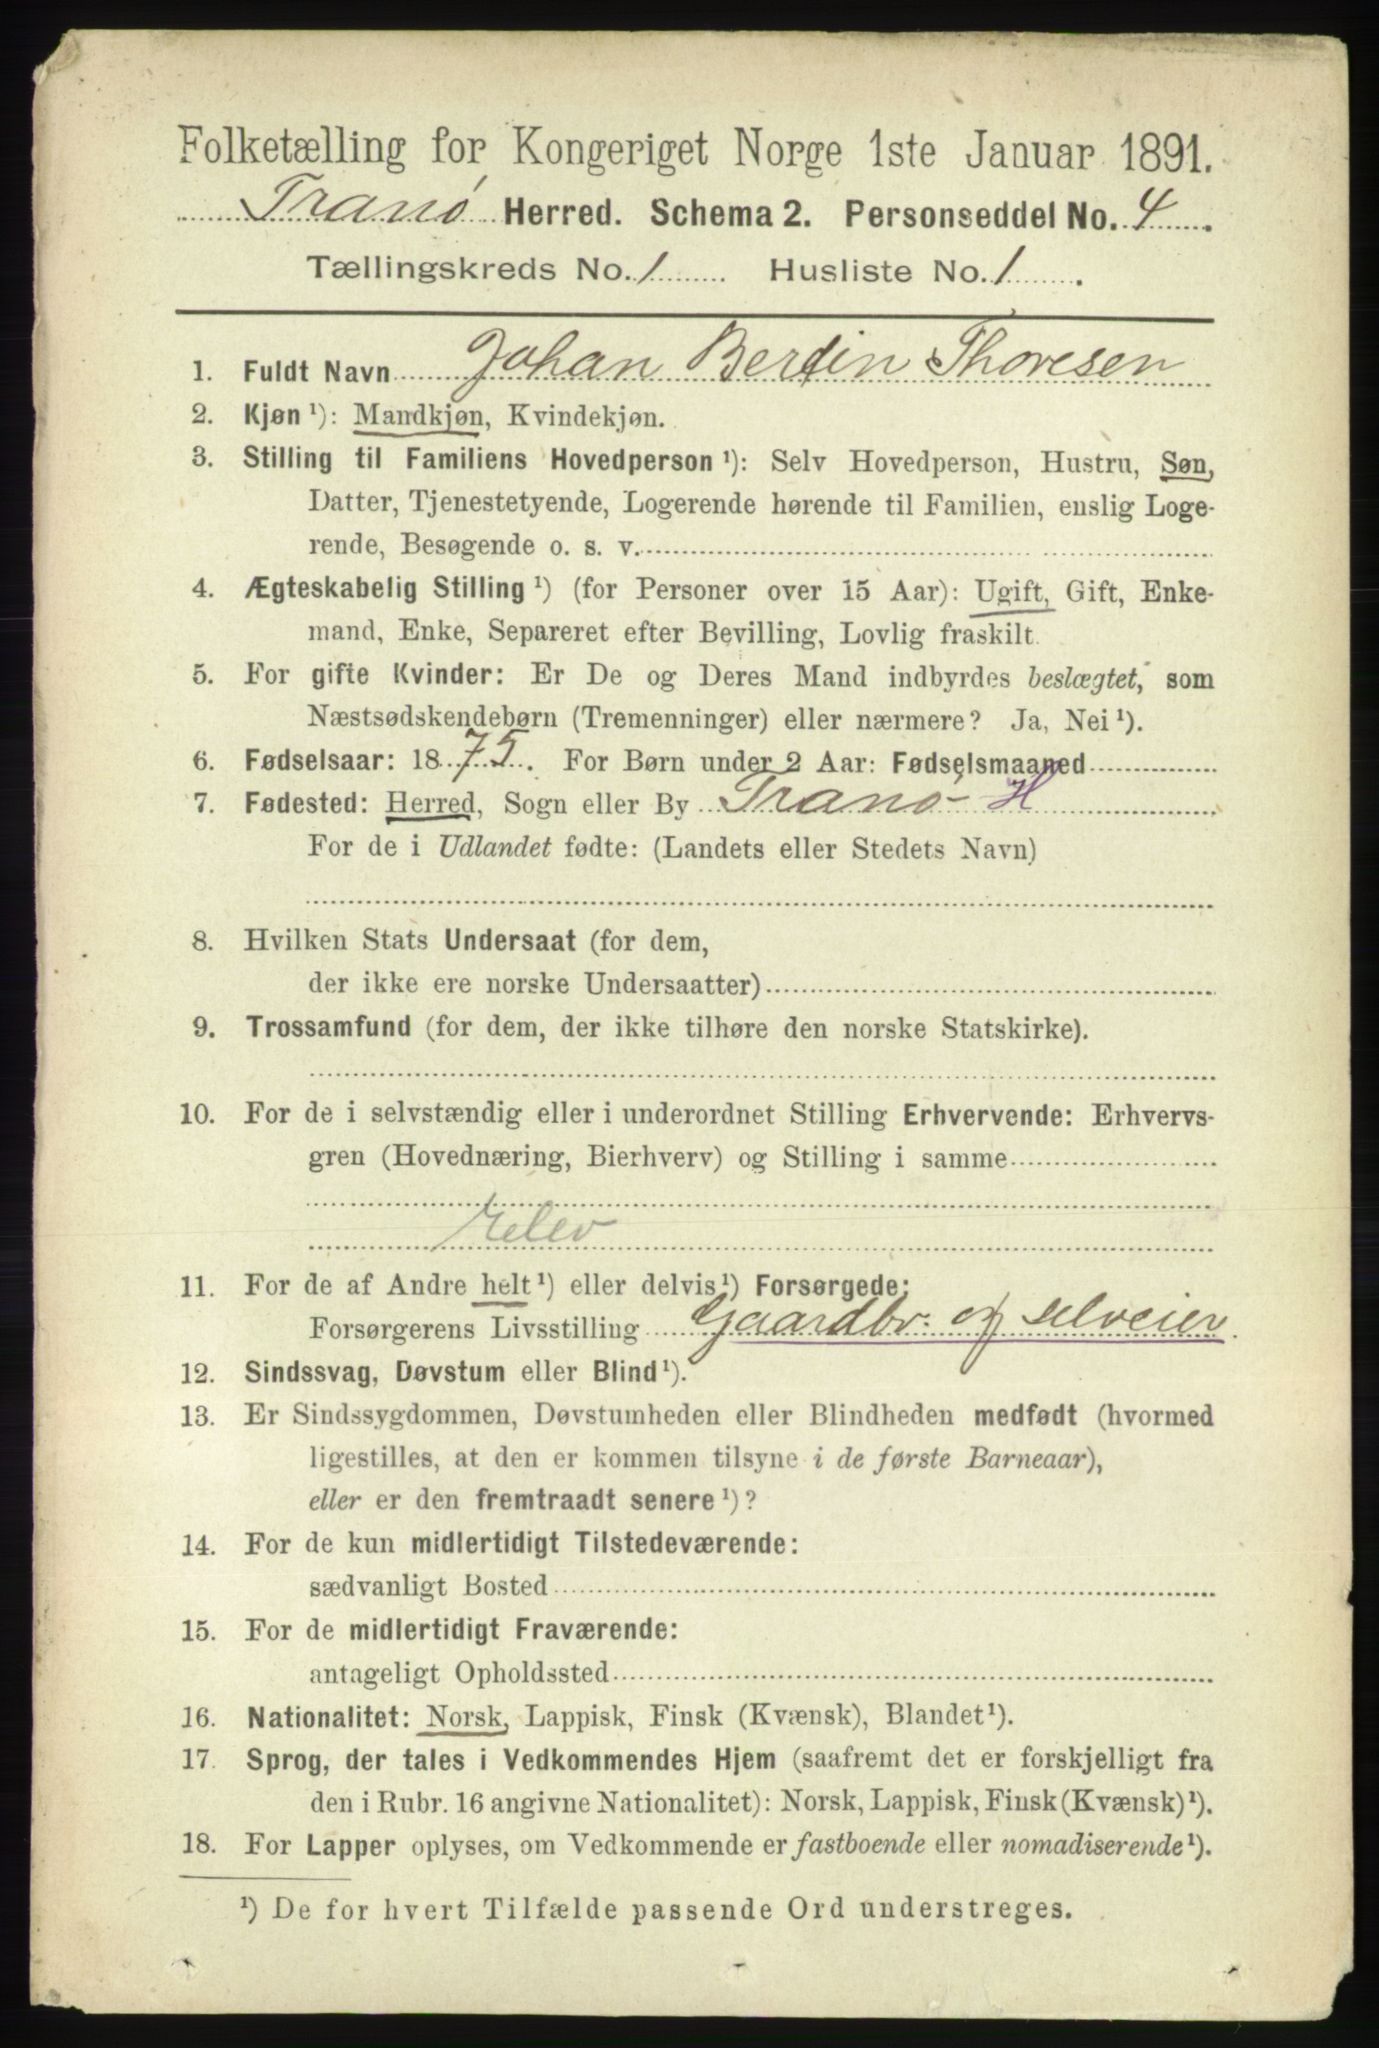 Folketælling for Kongeriget Norge 1ste Januar 1891.
Tranø Herred. Schema 2. Personseddel No. 4.
Tællingskreds No. 1 Husliste No. 1.
1. Fuldt Navn Johan Bertin Thoresen
2. Kjøn ¹): Mandkjøn, Kvindekjøn.
3. Stilling til Familiens Hovedperson ¹): Selv Hovedperson, Hustru, Søn,
Datter, Tjenestetyende, Logerende hørende til Familien, enslig Loge-
rende, Besøgende o. s. v.
4. Ægteskabelig Stilling ¹) (for Personer over 15 Aar): Ugift, Gift, Enke-
mand, Enke, Separeret efter Bevilling, Lovlig fraskilt.
5. For gifte Kvinder: Er De og Deres Mand indbyrdes beslægtet, som
Næstsødskendebørn (Tremenninger) eller nærmere? Ja, Nei ¹).
6. Fødselsaar: 1875. For Børn under 2 Aar: Fødselsmaaned
7. Fødested: Herred, Sogn eller By Tranø H
For de i Udlandet fødte: (Landets eller Stedets Navn)
8. Hvilken Stats Undersaat (for dem,
der ikke ere norske Undersaatter)
9. Trossamfund (for dem, der ikke tilhøre den norske Statskirke).
10. For de i selvstændig eller i underordnet Stilling Erhvervende: Erhvervs-
gren (Hovednæring, Bierhverv) og Stilling i samme
Elev
11. For de af Andre helt ¹) eller delvis ¹) Forsørgede:
Forsørgerens Livsstilling Gaardbr. og selveier.
12. Sindssvag, Døvstum eller Blind ¹).
13. Er Sindssygdommen, Døvstumheden eller Blindheden medfødt (hvormed
ligestilles, at den er kommen tilsyne i de første Barneaar),
eller er den fremtraadt senere ¹)?
14. For de kun midlertidigt Tilstedeværende:
sædvanligt Bosted
15. For de midlertidigt Fraværende:
antageligt Opholdssted
16. Nationalitet: Norsk, Lappisk, Finsk (Kvænsk), Blandet ¹).
17. Sprog, der tales i Vedkommendes Hjem (saafremt det er forskjelligt fra
den i Rubr. 16 angivne Nationalitet): Norsk, Lappisk, Finsk (Kvænsk) ¹).
18. For Lapper oplyses, om Vedkommende er fastboende eller nomadiserende ¹).
¹) De for hvert Tilfælde passende Ord understreges.